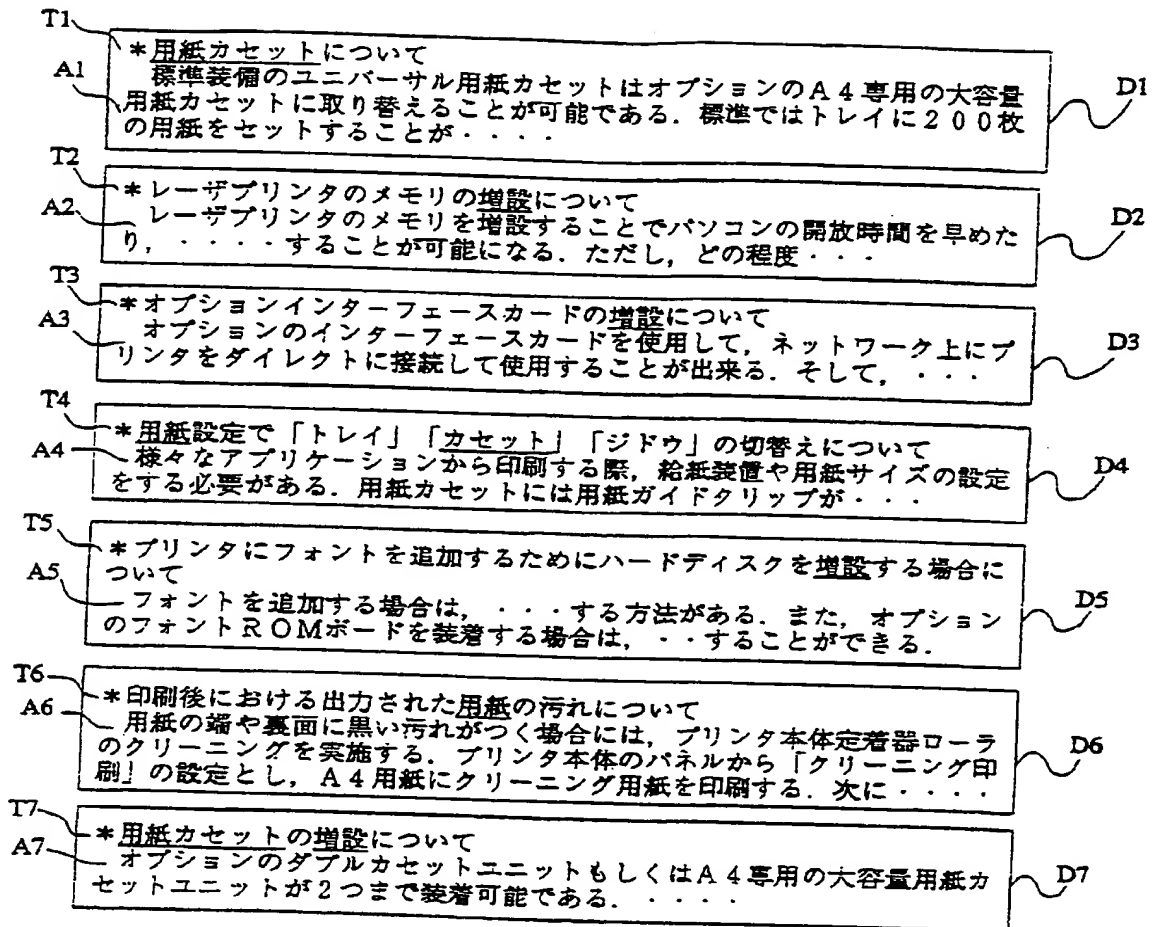 T1
*用紙カセットについて
A1
標準装備のユニバーサル用紙カセットはオプションのA4専用の大容量
用紙カセットに取り替えることが可能である．標準ではトレイに200枚
の用紙をセットすることが・・・・
D1
T2
*レーザプリンタのメモリの増設について
A2
レーザプリンタのメモリを増設することでパソコンの開放時間を早めた
り，・・・・することが可能になる．ただし，どの程度・・・
D2
T3
*オプションインターフェースカードの増設について
A3
オプションのインターフェースカードを使用して，ネットワーク上にプ
リンタをダイレクトに接続して使用することが出来る．そして，・・・
D3
T4
*用紙設定で「トレイ」「カセット」「ジドウ」の切替えについて
A4
様々なアプリケーションから印刷する際，給紙装置や用紙サイズの設定
をする必要がある．用紙カセットには用紙ガイドクリップが・・・
D4
T5
*プリンタにフォントを追加するためにハードディスクを増設する場合に
ついて
A5
フォントを追加する場合は，・・・する方法がある．また，オプション
のフォントROMボードを装着する場合は，・・することができる．
D5
T6
*印刷後における出力された用紙の汚れについて
A6
用紙の端や裏面に黒い汚れがつく場合には，プリンタ本体定着器ローラ
のクリーニングを実施する．プリンタ本体のパネルから「クリーニング印
刷」の設定とし，A4用紙にクリーニング用紙を印刷する．次に・・・・
D6
T7
*用紙カセットの増設について
A7
オプションのダブルカセットユニットもしくはA4専用の大容量用紙カ
セットユニットが2つまで装着可能である．・・・・
D7